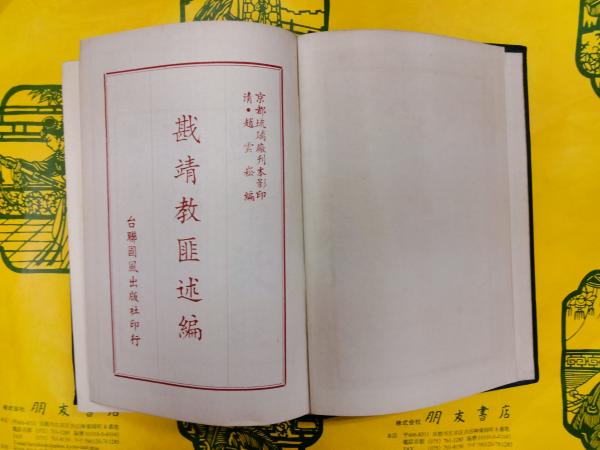 京都琉璃廠刊本影印
清•趙雲崧編
戡靖教匪述編
台聯國風出版社印行
株式会社 朋友書店
株式会社 朋友書店